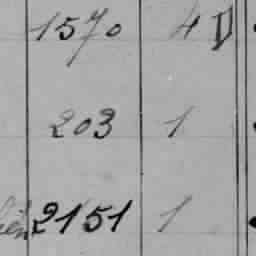 1570 4
203 1
2151 1